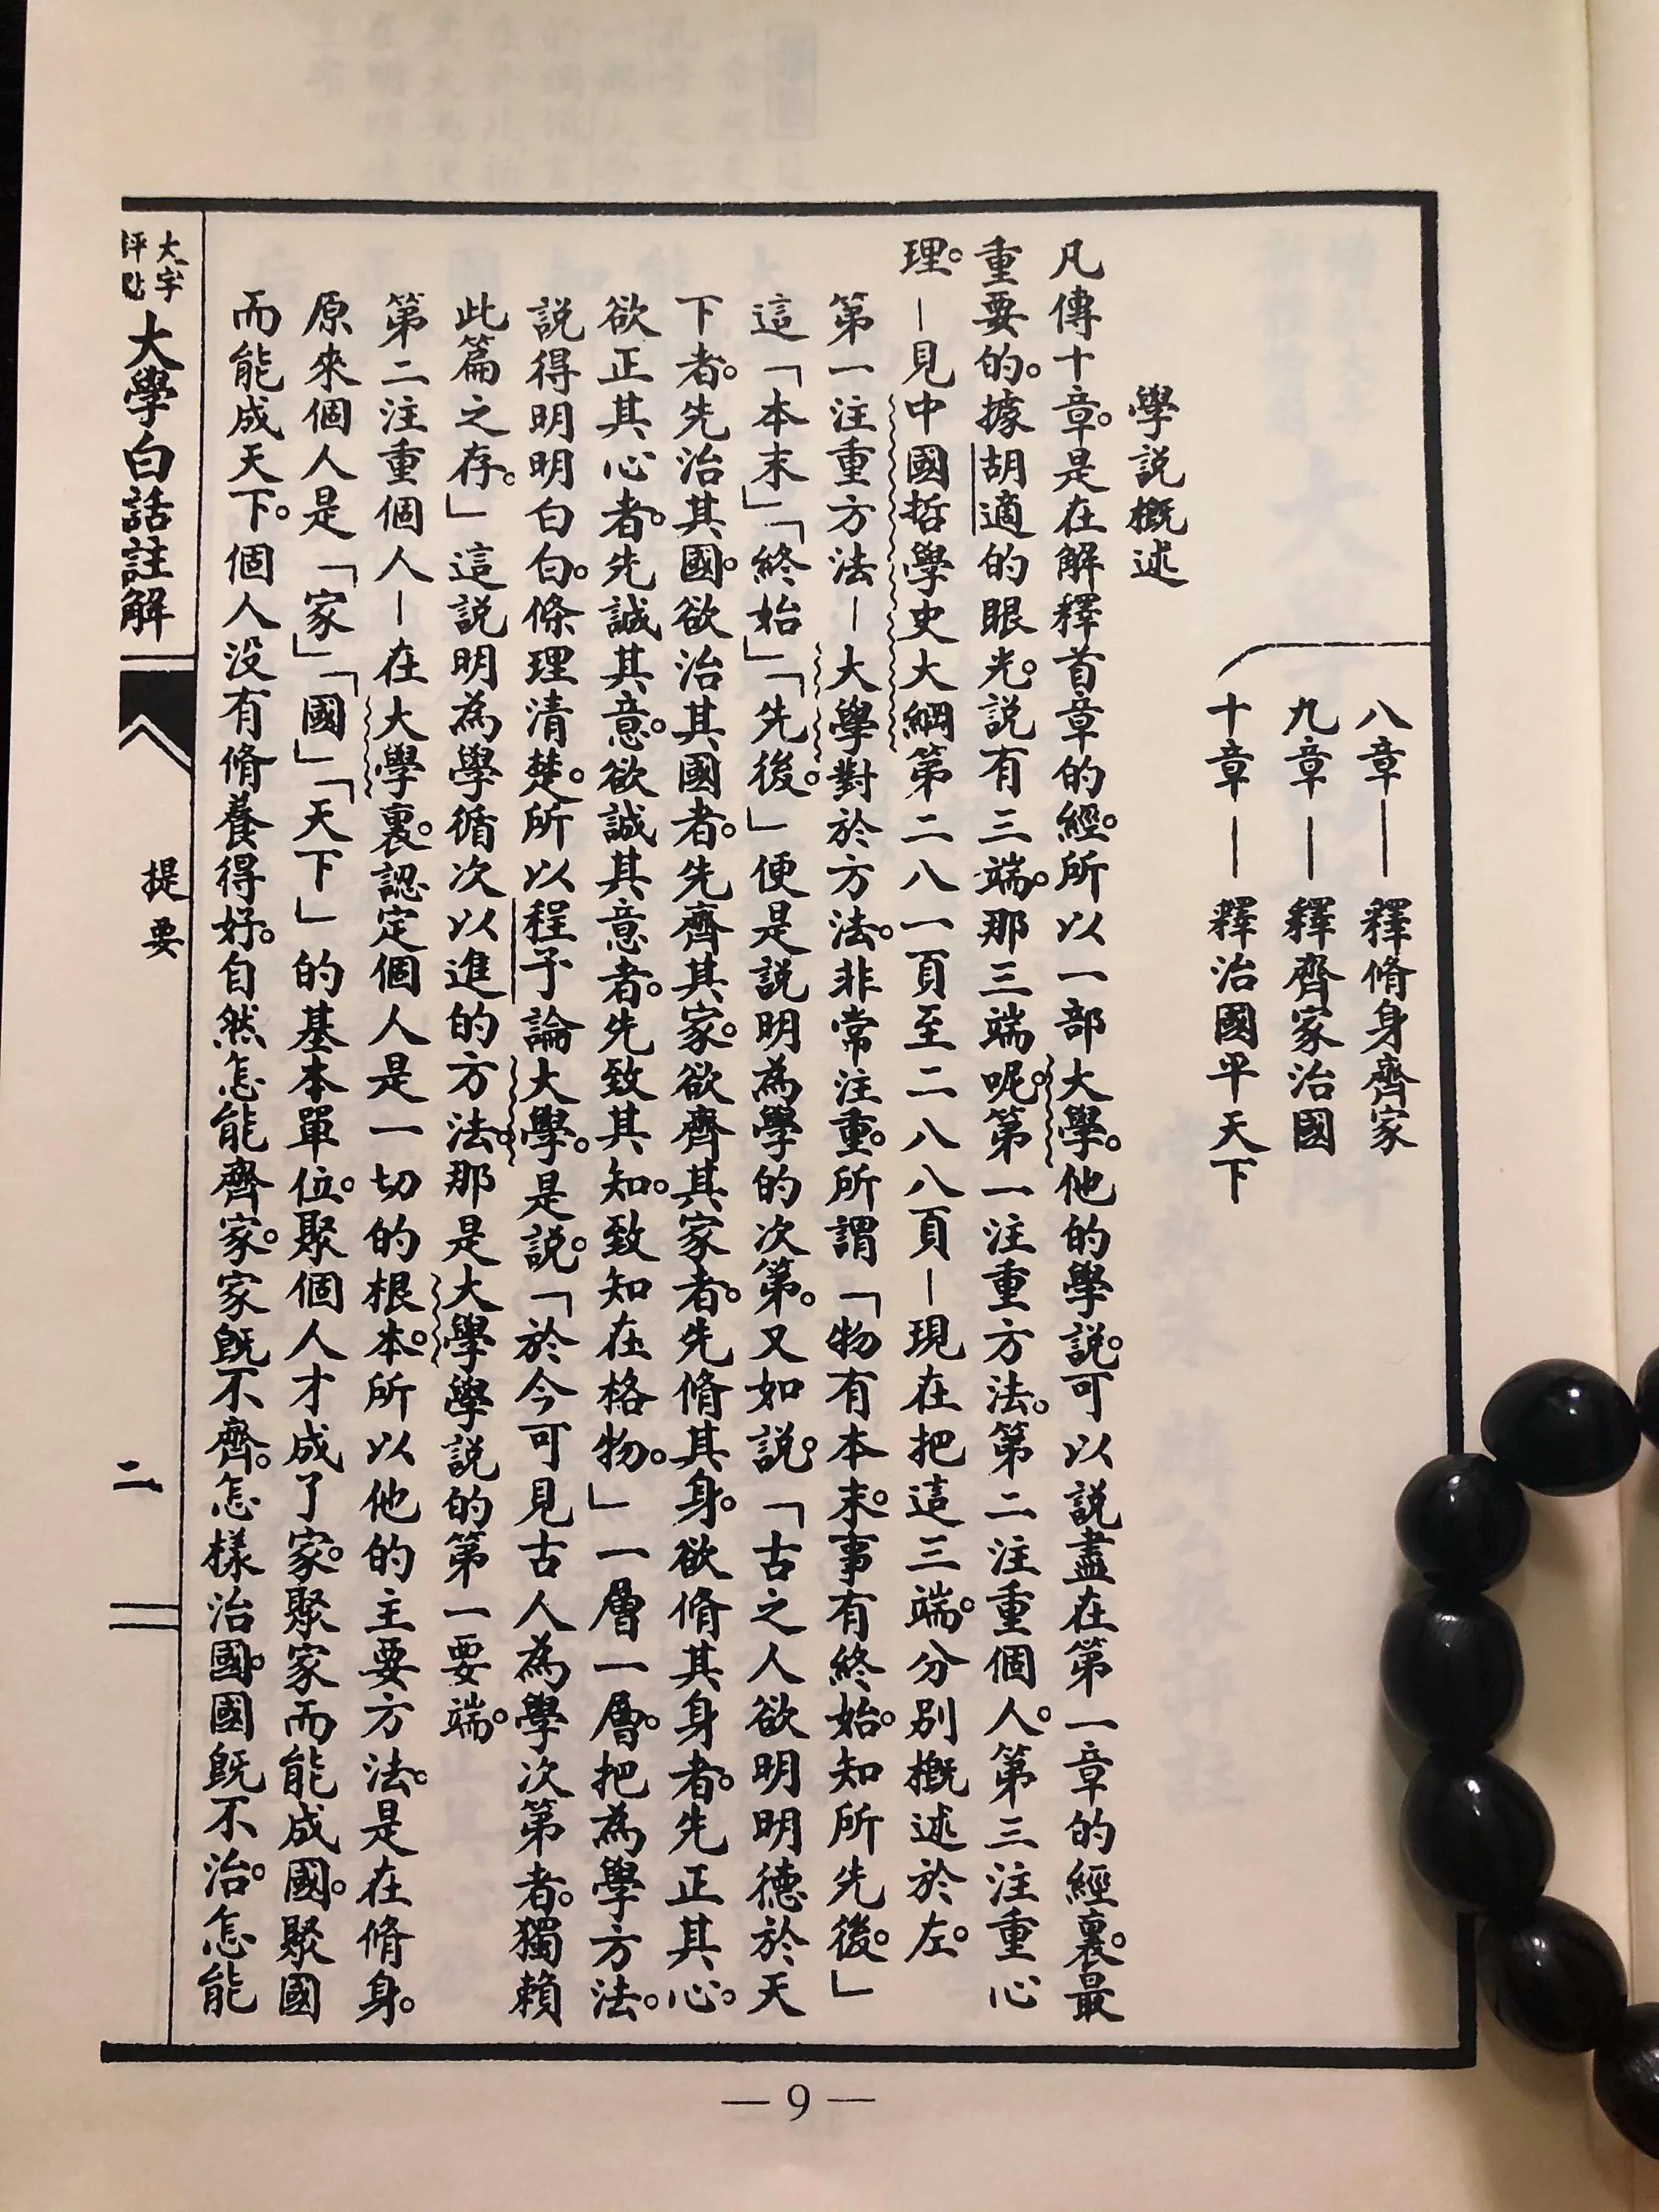 八章——釋脩身齊家
九章——釋齊家治國
十章——釋治國平天下
學説概述
凡傳十章。是在解釋首章的經。所以一部大學。他的學説。可以説盡在第一章的經裏。最
重要的。據胡適的眼光。説有三端。那三端呢。第一注重方法。第二注重個人。第三注重心
理。—見中國哲學史大綱第二八一頁至二八八頁—現在把這三端。分别概述於左。
第一注重方法—大學對於方法。非常注重。所謂「物有本末。事有終始。知所先後。」
這「本末」「終始」「先後。」便是説明為學的次第。又如説。「古之人欲明明德於天
下者。先治其國。欲治其國者。先齊其家。欲齊其家者。先脩其身。欲脩其身者。先正其心。
欲正其心者。先誠其意。欲誠其意者。先致其知。致知在格物。」一層一層。把為學方法。
説得明明白白。條理清楚。所以程子論大學。是説。「於今可見古人為學次第者。獨賴
此篇之存。」這説明為學循次以進的方法。那是大學學説的第一要端。
第二注重個人—在大學裏。認定個人是一切的根本。所以他的主要方法。是在脩身。
原來個人是「家」「國」「天下」的基本單位。聚個人才成了家。聚家而能成國。聚國
而能成天下。個人没有脩養得好。自然怎能齊家。家既不齊。怎樣治國。國既不治。怎能
大字
評點
大學白話註解
提要
二
— 9 —